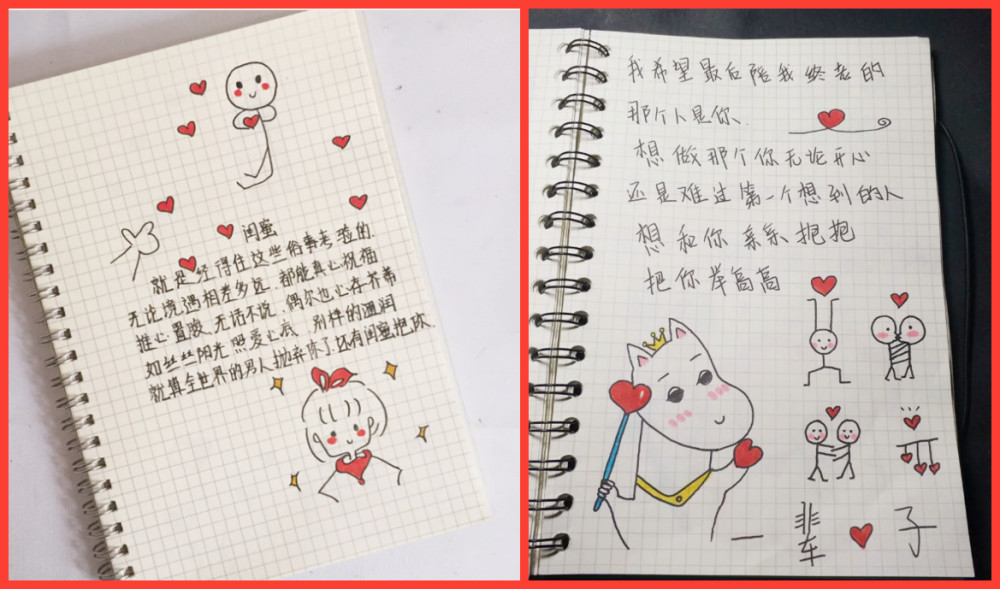 闺蜜
就是经得住这些俗事考验的
无论境遇相差多远.都能真心祝福
推心置腹.无话不说.偶尔也心存芥蒂
如丝丝阳光照爱心底 别样的温润
就算全世界的男人抛弃你了还有闺蜜抱你
我希望最后陪我终老的
那个人是你、
想做那个你无论开心
还是难过第一个想到的人
想和你亲亲抱抱
把你举高高
一辈子